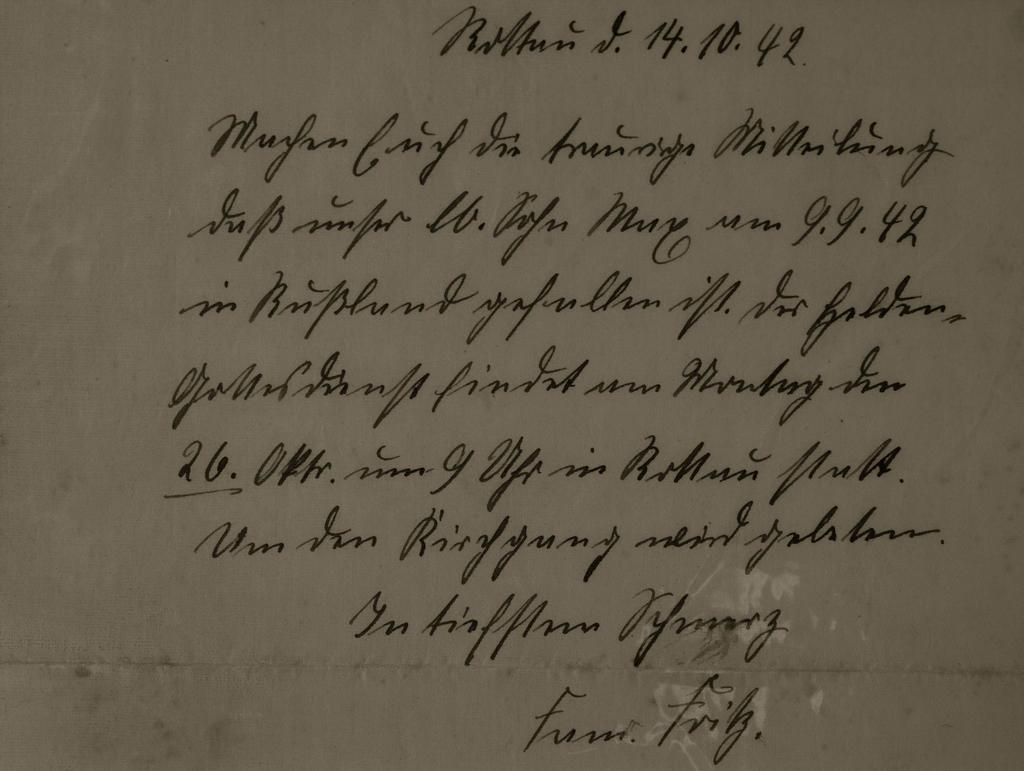 Rottau d. 14.10.42.
Machen Euch die traurige Mitteilung
daß unser lb. Sohn Max am 9.9.42
in Rußland gefallen ist. Der Helden-
Gottesdienst findet am Montag den
26. Oktr. um 9 Uhr in Rottau statt.
Um den Kirchgang wird gebeten.
In tiefstem Schmerz
Fam. Fritz.